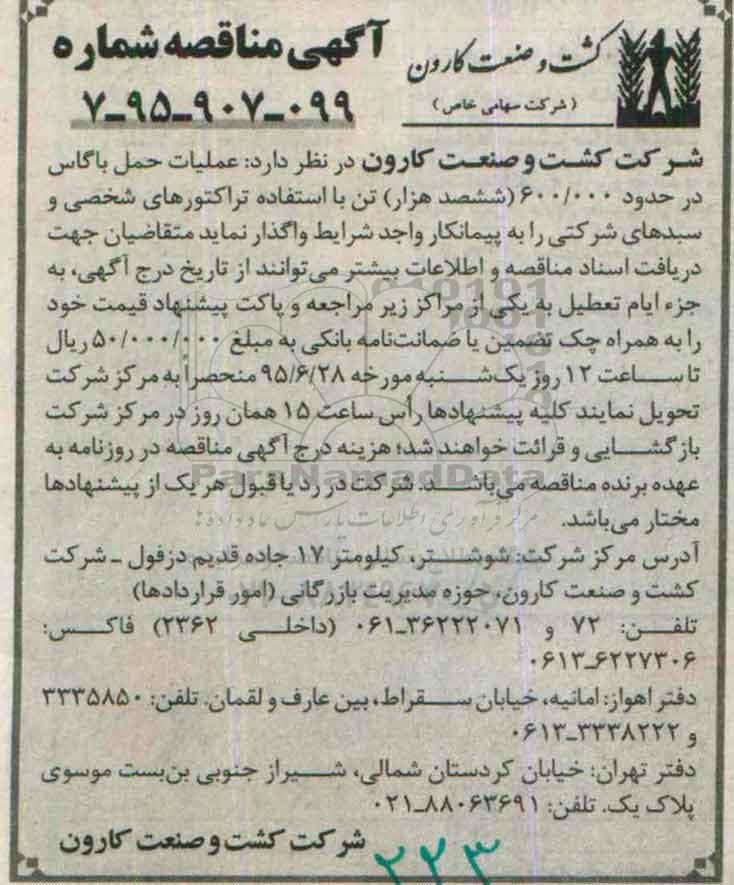 آگهی مناقصه شماره
۷-۹۵-۹۰۷-۰۹۹
کشت و صنعت کارون
(شرکت سهامی خاص)
شرکت کشت و صنعت کارون در نظر دارد: عملیات حمل باگاس
در حدود ۶۰۰/۰۰۰ (ششصد هزار) تن با استفاده تراکتورهای شخصی و
سبدهای شرکتی را به پیمانکار واجد شرایط واگذار نماید متقاضیان جهت
دریافت اسناد مناقصه و اطلاعات بیشتر می‌توانند از تاریخ درج آگهی، به
جزء ایام تعطیل به یکی از مراکز زیر مراجعه و پاکت پیشنهاد قیمت خود
را به همراه چک تضمین یا ضمانت‌نامه بانکی به مبلغ ۵۰/۰۰۰/۰۰۰ ریال
تا ساعت ۱۲ روز یک‌شنبه مورخه ۹۵/۶/۲۸ منحصراً به مرکز شرکت
تحویل نمایند کلیه پیشنهادها رأس ساعت ۱۵ همان روز در مرکز شرکت
بازگشایی و قرائت خواهند شد؛ هزینه درج آگهی مناقصه در روزنامه به
عهده برنده مناقصه می‌باشد. شرکت در رد یا قبول هر یک از پیشنهادها
مختار می‌باشد.
ParsNamadData
مرکز فرآوری اطلاعات پارس نماد داده ها
آدرس مرکز شرکت: شوشتر، کیلومتر ۱۷ جاده قدیم دزفول ـ شرکت
کشت و صنعت کارون، حوزه مدیریت بازرگانی (امور قراردادها)
تلفن: ۷۲ و ۳۶۲۲۲۰۷۱-۰۶۱ (داخلی ۲۳۶۲) فاکس:
۰۶۱۳-۶۲۲۷۳۰۶
دفتر اهواز: امانیه، خیابان سقراط، بین عارف و لقمان. تلفن: ۳۳۳۵۸۵۰
و ۳۳۳۸۲۲۲-۰۶۱۳
دفتر تهران: خیابان کردستان شمالی، شیراز جنوبی بن‌بست موسوی
پلاک یک. تلفن: ۸۸۰۶۳۶۹۱-۰۲۱
شرکت کشت و صنعت کارون
۲۲۳